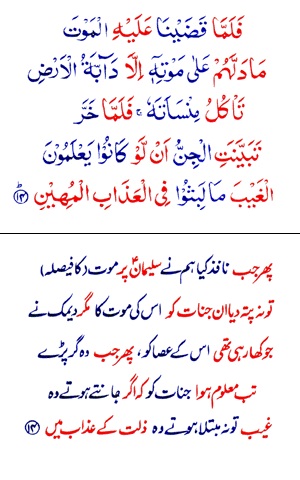 فَلَمَّا قَضَيْنَا عَلَيْهِ الْمَوْتَ
مَا دَلَّهُمْ عَلٰى مَوْتِهٖۤ اِلَّا دَآبَّةُ الْاَرْضِ
تَاْكُلُ مِنْسَاَتَهٗ ۚ فَلَمَّا خَرَّ
تَبَيَّنَتِ الْجِنُّ اَنْ لَّوْ كَانُوْا يَعْلَمُوْنَ
الْغَيْبَ مَا لَبِثُوْا فِى الْعَذَابِ الْمُهِيْنِ ؕ ﴿۱۴﴾
پھر جب نافذ کیا ہم نے سلیمانؑ پر موت (کا فیصلہ)
تو نہ پتہ دیا ان جنات کو اس کی موت کا مگر دیمک نے
جو کھا رہی تھی اس کے عصا کو، پھر جب وہ گر پڑے
تب معلوم ہوا جنات کو کہ اگر جانتے ہوتے وہ
غیب تو نہ مبتلا ہوتے وہ ذلت کے عذاب میں ﴿۱۴﴾